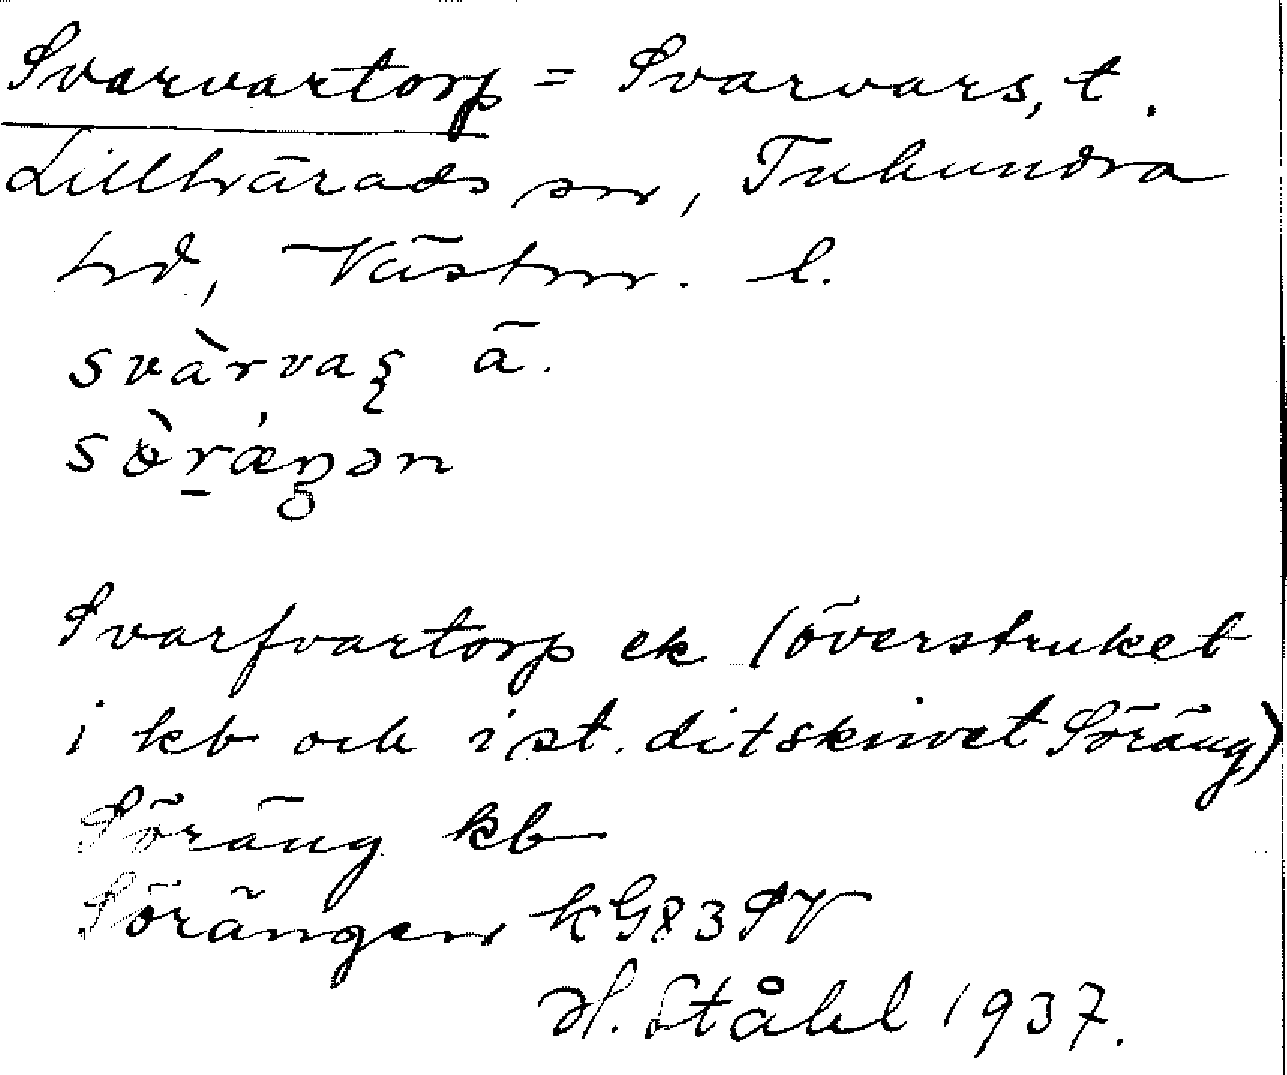 Svarvartorp = Svarvars, t.
Lillhärads sn, Tuhundra
hd, Västm. l.
svàrvaʂ ä.
sèr̠ǽŋən
Svarfvartorp ek (överstruket
i kb och i st. ditskrivet Söräng)
Söräng kb
Sörängen kG83SV
H. Ståhl 1937.